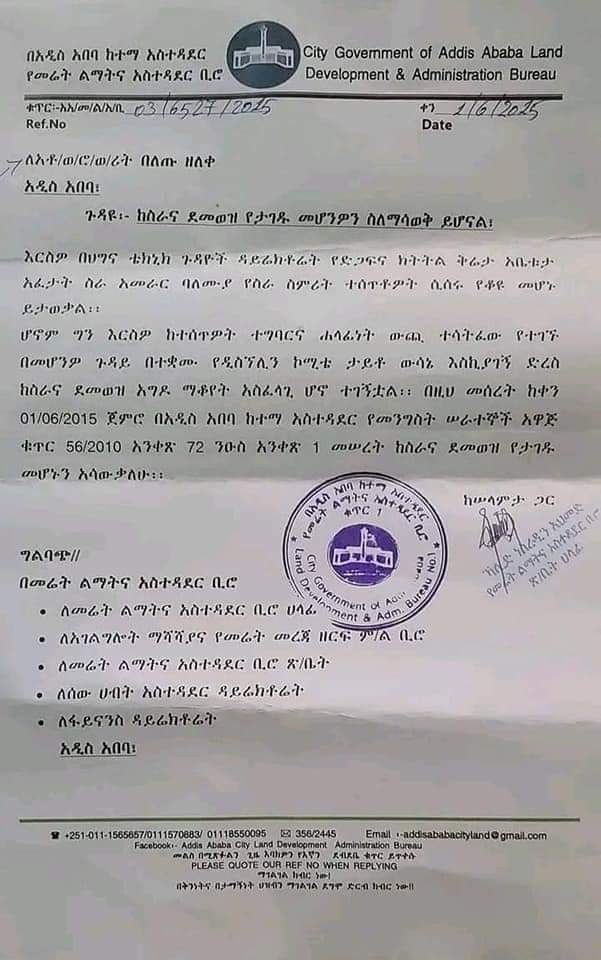 በአዲስ አበባ ከተማ አስተዳደር
የመሬት ልማትና አስተዳደር ቢሮ
City Government of Addis Ababa Land
Development & Administration Bureau
ቁጥር፡-አአ/መ/ል/አ/ቢ 03/6527/2015
Ref.No
ቀን 1/6/2015
Date
ለአቶ/ወ/ሮ/ወ/ሪት በለጡ ዘለቀ
አዲስ አበባ፤
ጉዳዩ፡- ከስራና ደመወዝ የታገዱ መሆንዎን ስለማሳወቅ ይሆናል፤
እርስዎ በህግና ቴክኒክ ጉዳዮች ዳይሬክቶሬት የድጋፍና ክትትል ቅሬታ አቤቱታ
አፈታት ስራ አመራር ባለሙያ የስራ ስምሪት ተሰጥቶዎት ሲሰሩ የቆዩ መሆኑ
ይታወቃል፡፡
ሆኖም ግን እርስዎ ከተሰጥዎት ተግባርና ሐላፊነት ውጪ ተሳትፈው የተገኙ
በመሆንዎ ጉዳይ በተቋሙ የዲስፕሊን ኮሚቴ ታይቶ ውሳኔ እስኪያገኝ ድረስ
ከስራና ደመወዝ አግዶ ማቆየት አስፈላጊ ሆኖ ተገኝቷል፡፡ በዚህ መሰረት ከቀን
01/06/2015 ጀምሮ በአዲስ አበባ ከተማ አስተዳደር የመንግስት ሠራተኞች አዋጅ
ቁጥር 56/2010 አንቀጽ 72 ንዑስ አንቀጽ 1 መሠረት ከስራና ደመወዝ የታገዱ
መሆኑን አሳውቃለሁ፡፡
ከሠላምታ ጋር
በአዲስ አበባ ከተማ አስተዳደር
የመሬት ልማትና አስተዳደር ቢሮ
ቁጥር 1
City Government of
Land Development & Adm. Bureau
የመሬት ልማትና አስተዳደር ቢሮ
ጽ/ቤት ሀላፊ
ግልባጭ//
በመሬት ልማትና አስተዳደር ቢሮ
• ለመሬት ልማትና አስተዳደር ቢሮ ሀላፊ
• ለአገልግሎት ማሻሻያና የመሬት መረጃ ዘርፍ ም/ል ቢሮ
• ለመሬት ልማትና አስተዳደር ቢሮ ጽ/ቤት
• ለሰው ሀብት አስተዳደር ዳይሬክቶሬት
• ለፋይናንስ ዳይሬክቶሬት
አዲስ አበባ፤
☎ +251-011-1565657/0111570883/ 01118550095 ✉ 356/2445 Email :-addisababacityland@gmail.com
Facebook:- Addis Ababa City Land Development Administration Bureau
መልስ በሚጽፉልን ጊዜ እባክዎን የእኛን ደብዳቤ ቁጥር ይጥቀሱ
PLEASE QUOTE OUR REF NO WHEN REPLYING
ማገልገል ክብር ነው!
በቅንነትና በታማኝነት ህዝብን ማገልገል ደግሞ ድርብ ክብር ነው!!